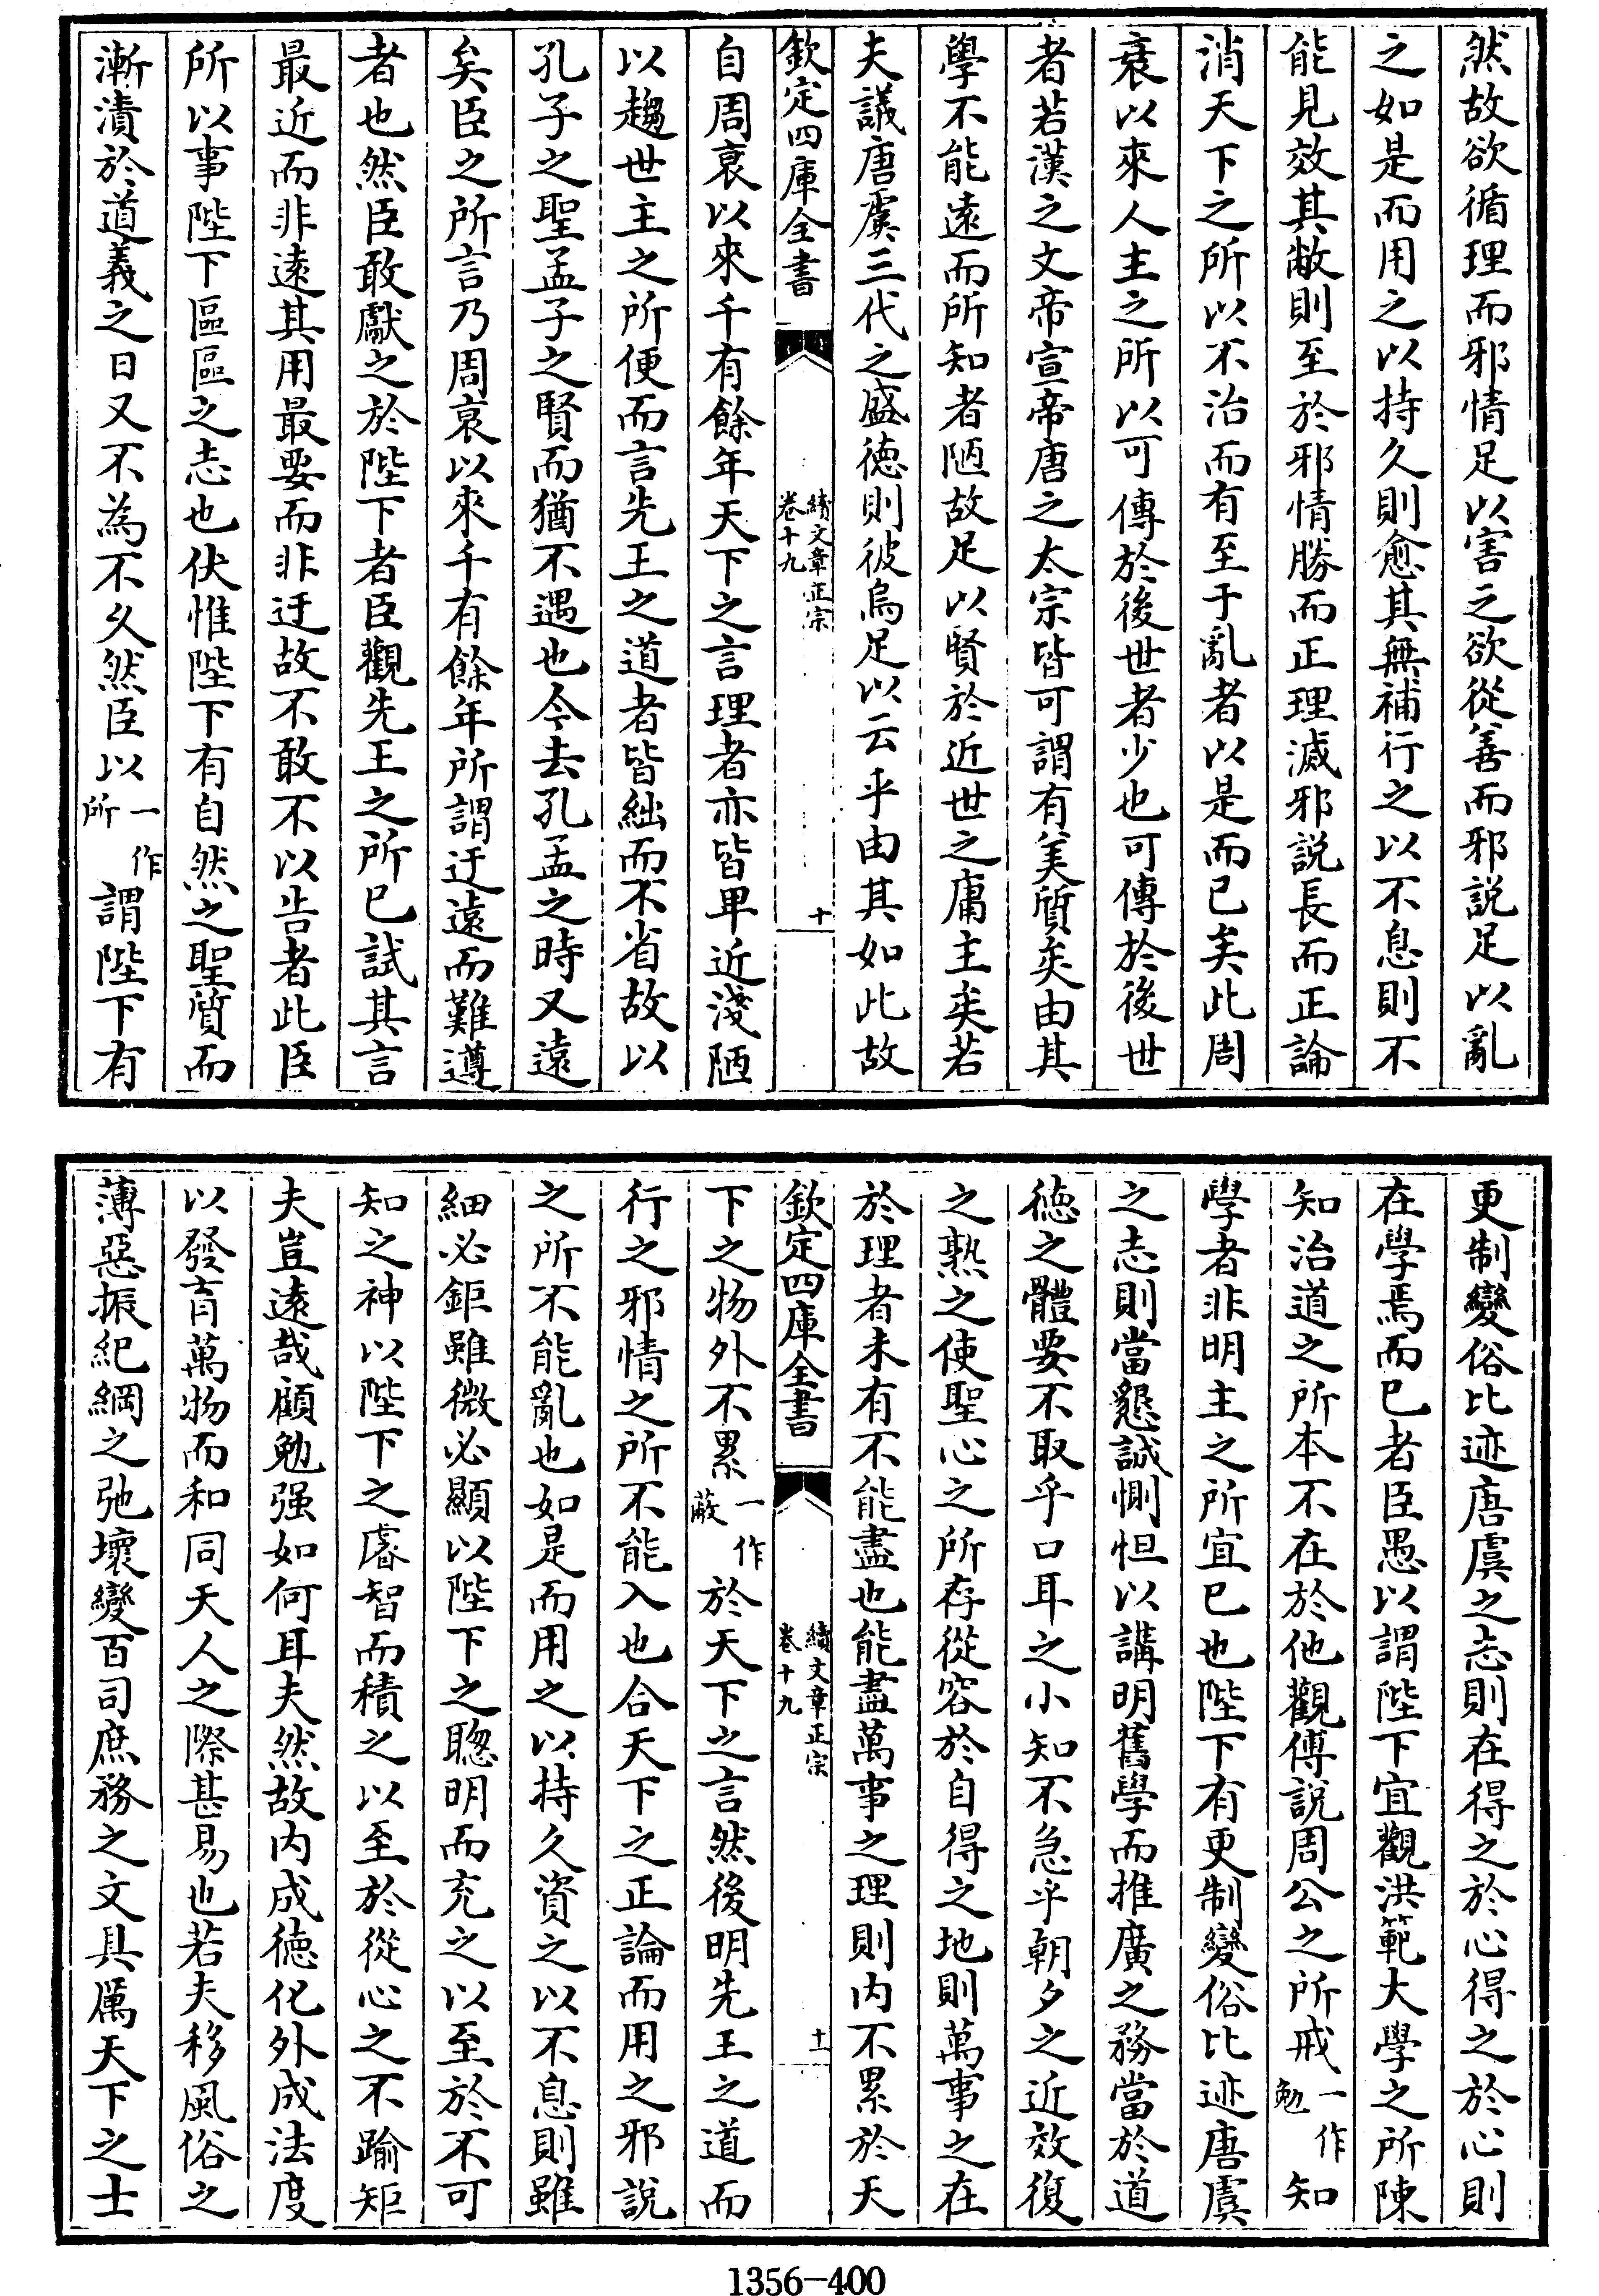 然故欲循理而邪情足以害之欲從善而邪説足以亂
之如是而用之以持久則愈其無補行之以不息則不
能見效其敝則至於邪情勝而正理滅邪説長而正論
消天下之所以不治而有至于亂者以是而已矣此周
衰以來人主之所以可傳於後世者少也可傳於後世
者若漢之文帝宣帝唐之太宗皆可謂有美質矣由其
學不能遠而所知者陋故足以賢於近世之庸主矣若
夫議唐虞三代之盛徳則彼烏足以云乎由其如此故
欽定四庫全書
續文章正宗
卷十九
十
自周衰以來千有餘年天下之言理者亦皆卑近淺陋
以趨世主之所便而言先王之道者皆絀而不省故以
孔子之聖孟子之賢而猶不遇也今去孔孟之時又遠
矣臣之所言乃周衰以來千有餘年所謂迂遠而難遵
者也然臣敢獻之於陛下者臣觀先王之所已試其言
最近而非遠其用最要而非迂故不敢不以告者此臣
所以事陛下區區之志也伏惟陛下有自然之聖質而
漸漬於道義之日又不為不久然臣以一作所謂陛下有
更制變俗比迹唐虞之志則在得之於心得之於心則
在學焉而已者臣愚以謂陛下宜觀洪範大學之所陳
知治道之所本不在於他觀傅説周公之所戒一作勉知
學者非明主之所宜已也陛下有更制變俗比迹唐虞
之志則當懇誠惻怛以講明舊學而推廣之務當於道
徳之體要不取乎口耳之小知不急乎朝夕之近效復
之熟之使聖心之所存從容於自得之地則萬事之在
於理者未有不能盡也能盡萬事之理則内不累於天
欽定四庫全書
續文章正宗
卷十九
十一
下之物外不累一作蔽於天下之言然後明先王之道而
行之邪情之所不能入也合天下之正論而用之邪説
之所不能亂也如是而用之以持久資之以不息則雖
細必鉅雖微必顯以陛下之聰明而充之以至於不可
知之神以陛下之睿智而積之以至於從心之不踰矩
夫豈遠哉顧勉强如何耳夫然故内成徳化外成法度
以發育萬物而和同天人之際甚易也若夫移風俗之
薄惡振紀綱之弛壞變百司庶務之文具厲天下之士
1356—400